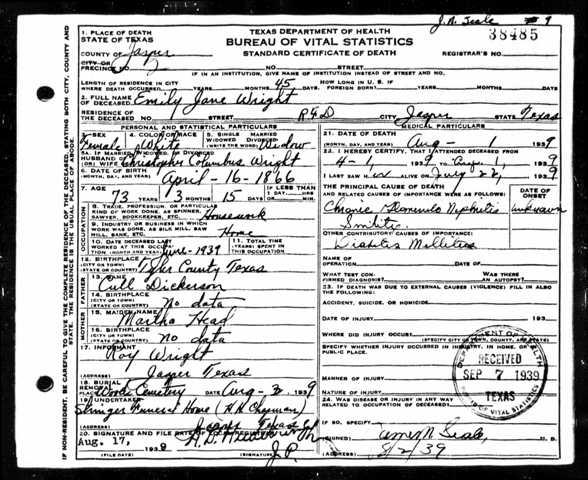 J. N. Seale #9
1. PLACE OF DEATH
STATE OF TEXAS
COUNTY OF Jasper
CITY OR PRECINCT NO. 7
TEXAS DEPARTMENT OF HEALTH
BUREAU OF VITAL STATISTICS
STANDARD CERTIFICATE OF DEATH
38485
REGISTRAR'S NO.
NO. STREET
IF IN AN INSTITUTION, GIVE NAME OF INSTITUTION INSTEAD OF STREET AND NO.
LENGTH OF RESIDENCE IN CITY WHERE DEATH OCCURRED YEARS 45 MONTHS DAYS HOW LONG IN U. S. IF FOREIGN BORN? YEARS MONTHS DAYS
2. FULL NAME OF DECEASED Emily Jane Wright
RESIDENCE OF THE DECEASED NO. STREET RFD CITY Jasper STATE Texas
PERSONAL AND STATISTICAL PARTICULARS
3. SEX Female
4. COLOR OR RACE White
5. SINGLE MARRIED WIDOWED DIVORCED (WRITE THE WORD) Widow
5A. IF MARRIED, WIDOWED OR DIVORCED HUSBAND OF (OR) WIFE Christopher Columbus Wright
6. DATE OF BIRTH (MONTH, DAY, AND YEAR) April-16-1866
7. AGE 73 YEARS 3 MONTHS 15 DAYS IF LESS THAN 1 DAY HRS MIN
8. TRADE, PROFESSION, OR PARTICULAR KIND OF WORK DONE, AS SPINNER, SAWYER, BOOKKEEPER, ETC. Housework
9. INDUSTRY OR BUSINESS IN WHICH WORK WAS DONE, AS SILK MILL, SAW MILL, BANK, ETC. Home
10. DATE DECEASED LAST WORKED AT THIS OCCUPATION (MONTH AND YEAR) June-1939
11. TOTAL TIME (YEARS) SPENT IN THIS OCCUPATION
12. BIRTHPLACE (CITY OR TOWN) (STATE OR COUNTRY) Tyler County Texas
13. NAME Cull Dickerson
14. BIRTHPLACE (CITY OR TOWN) (STATE OR COUNTRY) No data
15. MAIDEN NAME Martha Head
16. BIRTHPLACE (CITY OR TOWN) (STATE OR COUNTRY) No data
17. INFORMANT Roy Wright
(ADDRESS) Jasper Texas
18. BURIAL REMOVAL PLACE Woods Cemetery DATE Aug-2 1939
19. UNDERTAKER Stringer Funeral Home (H. K. Chapman)
(ADDRESS) Jasper Texas
20. SIGNATURE AND FILE DATE OF
Aug. 17, 1939
(FILE DATE) J. P.
MEDICAL PARTICULARS
21. DATE OF DEATH (MONTH, DAY, AND YEAR) Aug- 1939
22. I HEREBY CERTIFY, THAT I ATTENDED DECEASED FROM 4-1 1939 TO Aug 1 1939
I LAST SAW ALIVE ON July 22 1939
THE PRINCIPAL CAUSE OF DEATH AND RELATED CAUSES OF IMPORTANCE WERE AS FOLLOWS: DATE OF ONSET
Chronic Glomerulo Nephritis unknown
Senility
OTHER CONTRIBUTORY CAUSES OF IMPORTANCE:
Diabetes Mellitus
NAME OF OPERATION DATE OF
WHAT TEST CONFIRMED DIAGNOSIS WAS THERE AN AUTOPSY?
23. IF DEATH WAS DUE TO EXTERNAL CAUSES (VIOLENCE) FILL IN ALSO THE FOLLOWING:
ACCIDENT, SUICIDE, OR HOMICIDE
DATE OF INJURY 193
WHERE DID INJURY OCCUR? (SPECIFY CITY OR TOWN, COUNTY, AND STATE)
SPECIFY WHETHER INJURY OCCURRED IN INDUSTRY, IN HOME, OR PUBLIC PLACE.
MANNER OF INJURY
NATURE OF INJURY
24. WAS DISEASE OR INJURY IN ANY WAY RELATED TO OCCUPATION OF DECEASED?
IF SO, SPECIFY
(SIGNED) James N Seale, M. D.
(ADDRESS) 8/2/39
DEPARTMENT OF HEALTH
RECEIVED
SEP 7 1939
TEXAS
BUREAU OF VITAL STATISTICS